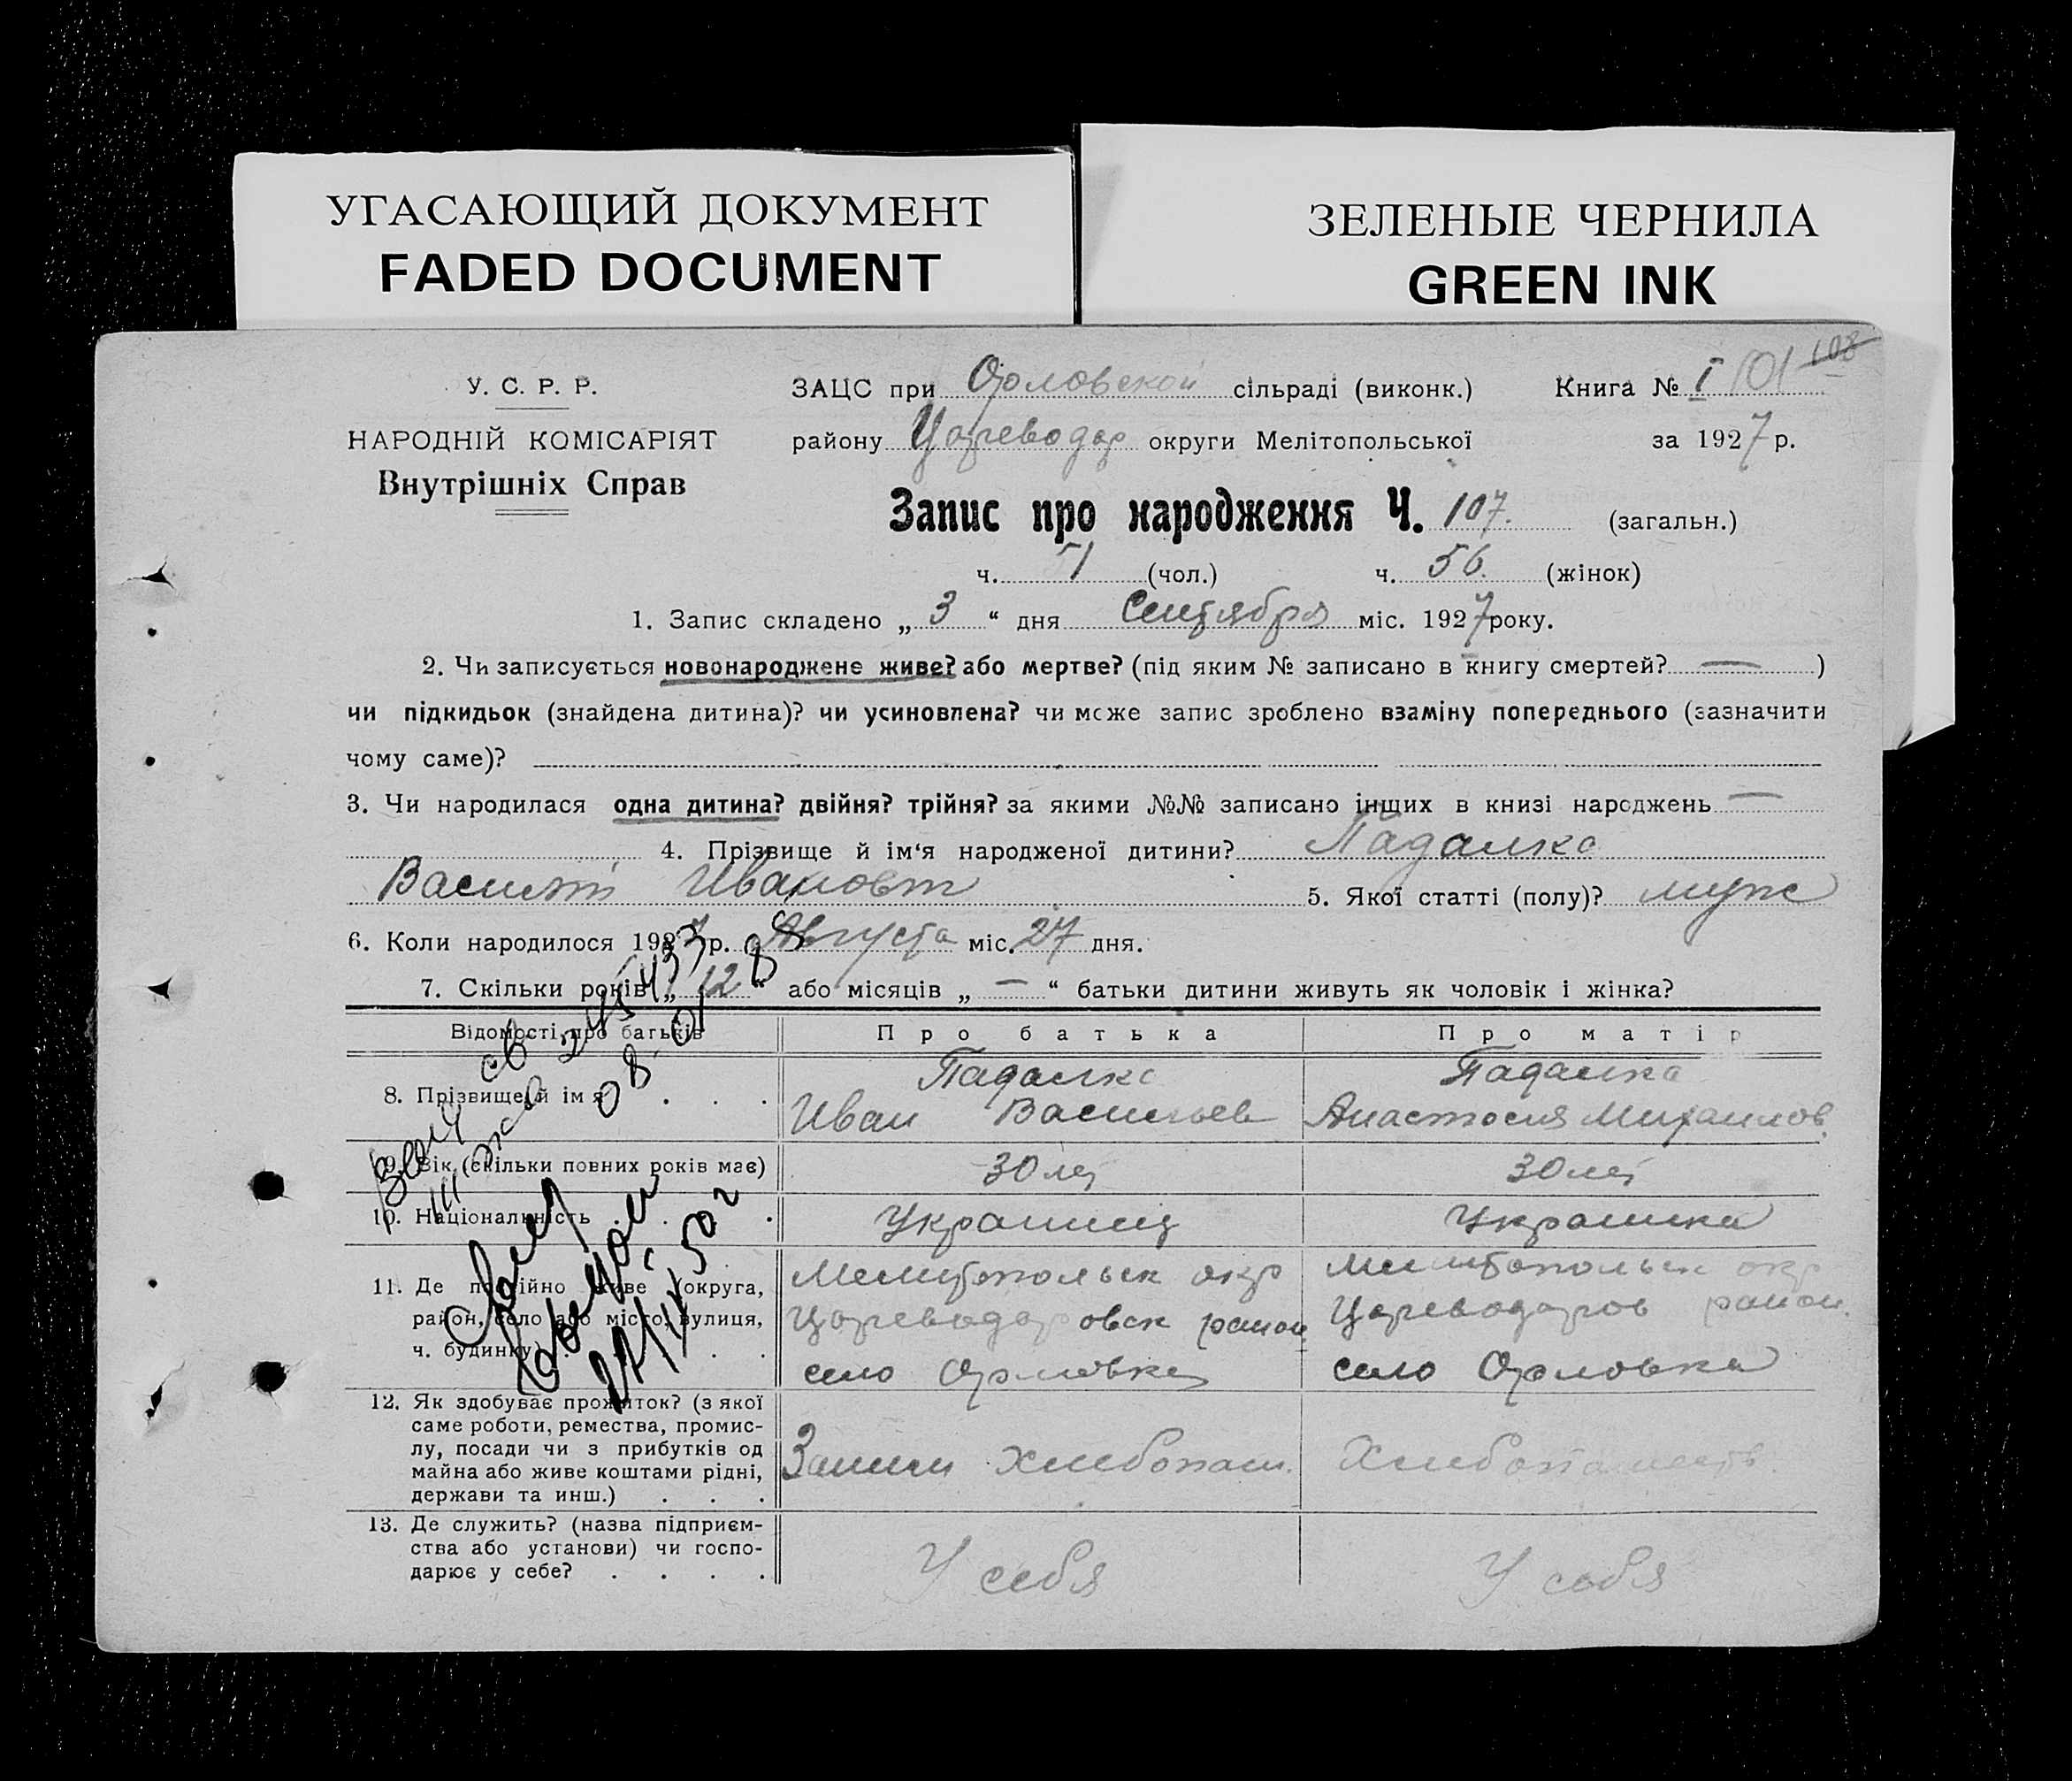 УГАСАЮЩИЙ ДОКУМЕНТ
FADED DOCUMENT
ЗЕЛЕНЫЕ ЧЕРНИЛА
GREEN INK
У. С. Р. Р.
НАРОДНІЙ КОМІСАРІЯТ
Внутрішніх Справ
ЗАЦС при Орловской сільраді (виконк.) Книга № I 101 108
району Цареводар округи Мелітопольської за 1927 р.
Запис про народження Ч. 107. (загальн.)
ч. 51 (чол.) ч. 56. (жінок)
1. Запис складено „ 3 “ дня Сентября міс. 1927 року.
2. Чи записується новонароджене живе? або мертве? (під яким № записано в книгу смертей? — )
чи підкидьок (знайдена дитина)? чи усиновлена? чи може запис зроблено взаміну попереднього (зазначити
чому саме)?
3. Чи народилася одна дитина? двійня? трійня? за якими №№ записано інших в книзі народжень —
4. Прізвище й ім‘я народженої дитини? Падалко
Василий Иванович 5. Якої статті (полу)? муж
6. Коли народилося 1927 р. Августа міс. 27 дня.
7. Скільки років „ 12 “ або місяців „ — “ батьки дитини живуть як чоловік і жінка?
Відомості про батьків Про батька Про матір
8. Прізвище й ім я . . .
Падалко
Иван Васильев
Падалка
Анастосия Михаилов.
9. Вік (скільки повних років має) 30 лет 30 лет
10. Національність . . . . Украинец Украинка
11. Де постійно живе (округа,
район, село або місто, вулиця,
ч. будинку) . . . .
Мелитопольск окр
Цареводаровск район
село Орловка
Мелитопольск окр
Цареводаров район.
село Орловка
12. Як здобуває прожиток? (з якої
саме роботи, ремества, промис-
лу, посади чи з прибутків од
майна або живе коштами рідні,
держави та инш.) . . .
Хлебопаш.
13. Де служить? (назва підприєм-
ства або установи) чи госпо-
дарює у себе? . . . .
У себя
У себя